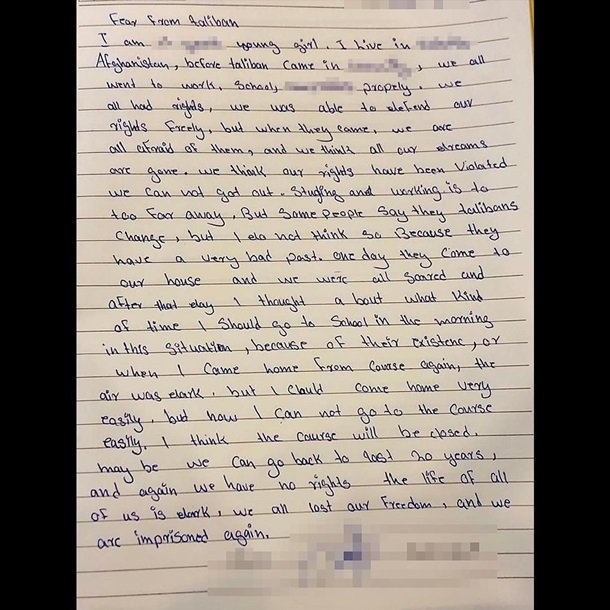 Fear from taliban
I am young girl. I live in
Afghanistan, before taliban came in , we all
went to work, school, properly. we
all had rights, we was able to defend our
rights freely, but when they came, we are
all afraid of them, and we think all our dreams
are gone. we think our rights have been violated
we can not got out. Studing and working is to
too far away. But some people say they talibans
change, but I do not think so Because they
have a very bad past. one day they come to
our house and we were all scared and
after that day I thought a bout what kind
of time I should go to school in the morning
in this situation, because of their existenc, or
when I came home from course again, the
air was dark. but I could come home very
easily, but now I can not go to the course
easily. I think the course will be closed.
may be we can go back to last 20 years,
and again we have no rights the life of all
of us is dark, we all lost our freedom, and we
are imprisoned again.